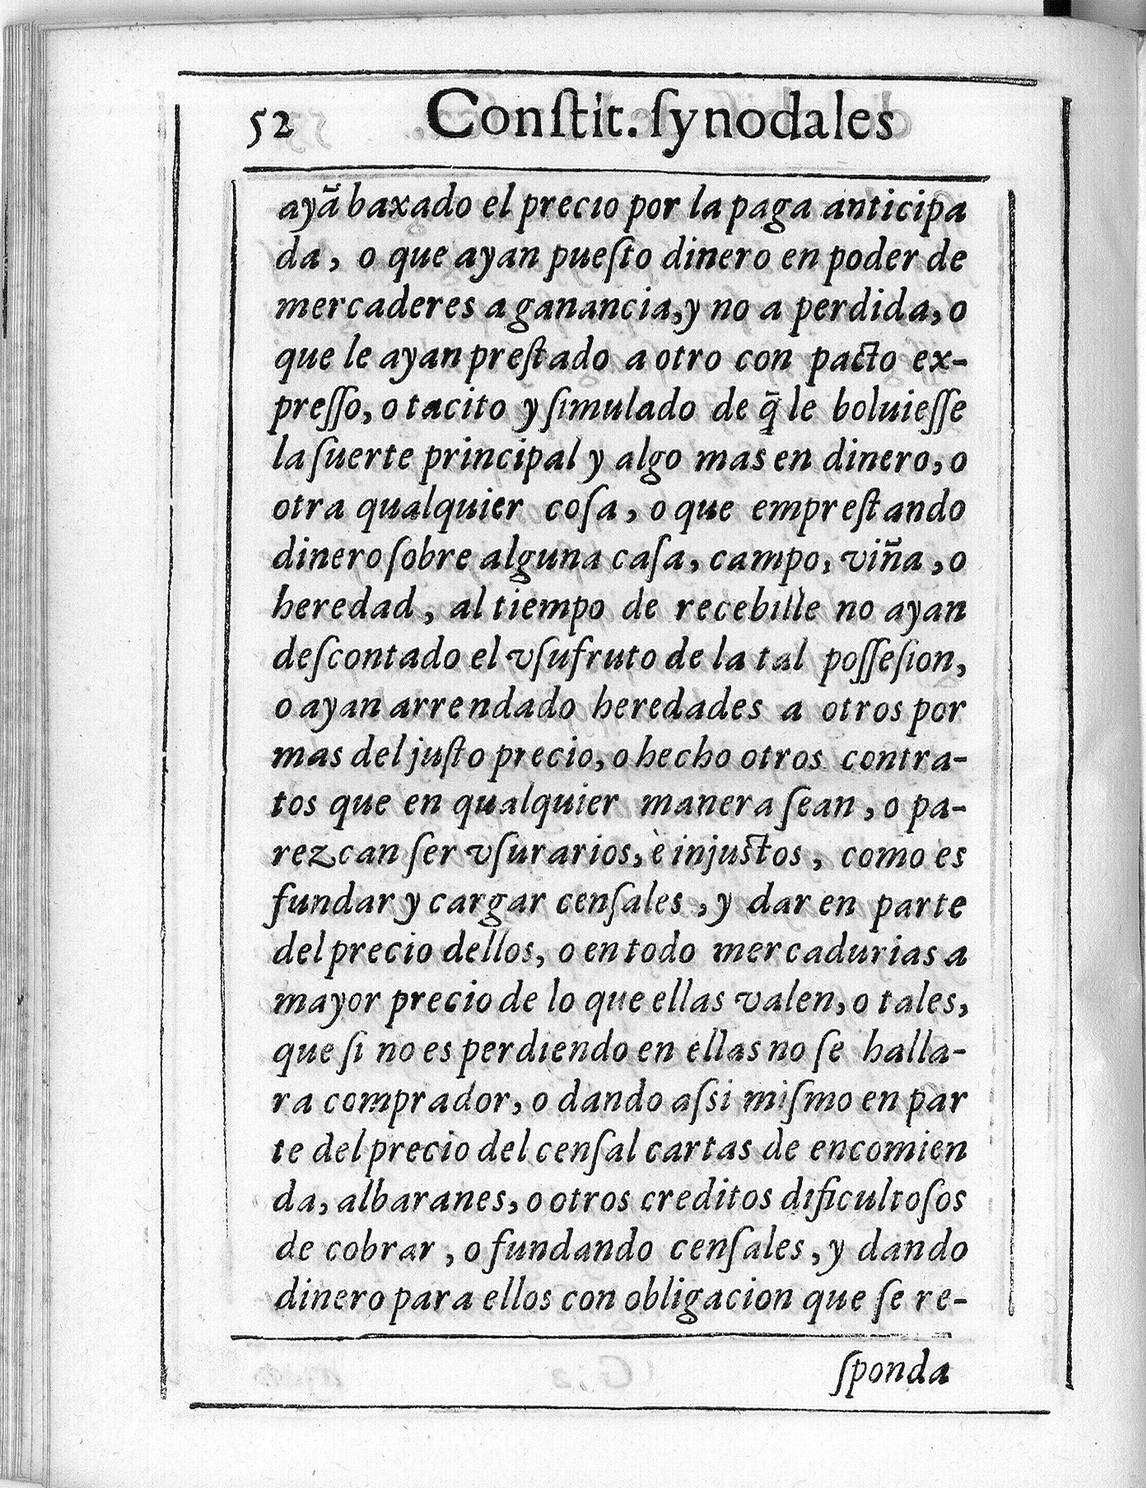 52 Conſtit. ſynodales
ayã baxado el precio por la paga anticipa
da, o que ayan pueſto dinero en poder de
mercaderes a ganancia, y no a perdida, o
que le ayan preſtado a otro con pacto ex-
preſſo, o tacito y ſimulado de q̃ le boluieſſe
la ſuerte principal y algo mas en dinero, o
otra qualquier coſa, o que empreſtando
dinero ſobre alguna caſa, campo, viña, o
heredad, al tiempo de recebille no ayan
deſcontado el vſufruto de la tal poſſeſion,
o ayan arrendado heredades a otros por
mas del juſto precio, o hecho otros contra-
tos que en qualquier manera ſean, o pa-
rezcan ſer vſurarios, è injuſtos, como es
fundar y cargar cenſales, y dar en parte
del precio dellos, o en todo mercadurias a
mayor precio de lo que ellas valen, o tales,
que ſi no es perdiendo en ellas no ſe halla-
ra comprador, o dando aſsi miſmo en par
te del precio del cenſal cartas de encomien
da, albaranes, o otros creditos dificultoſos
de cobrar, o fundando cenſales, y dando
dinero para ellos con obligacion que ſe re-
ſponda